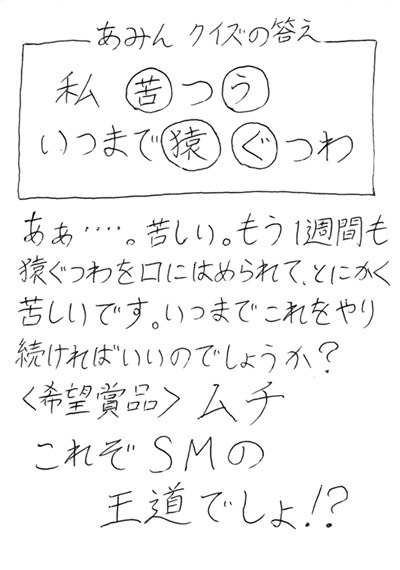 あみん クイズの答え
私 苦つう
いつまで猿ぐつわ
あぁ・・・・。苦しい。もう1週間も
猿ぐつわを口にはめられて、とにかく
苦しいです。いつまでこれをやり
続ければいいのでしょうか?
〈希望賞品〉ムチ
これぞSMの
王道でしょ!?